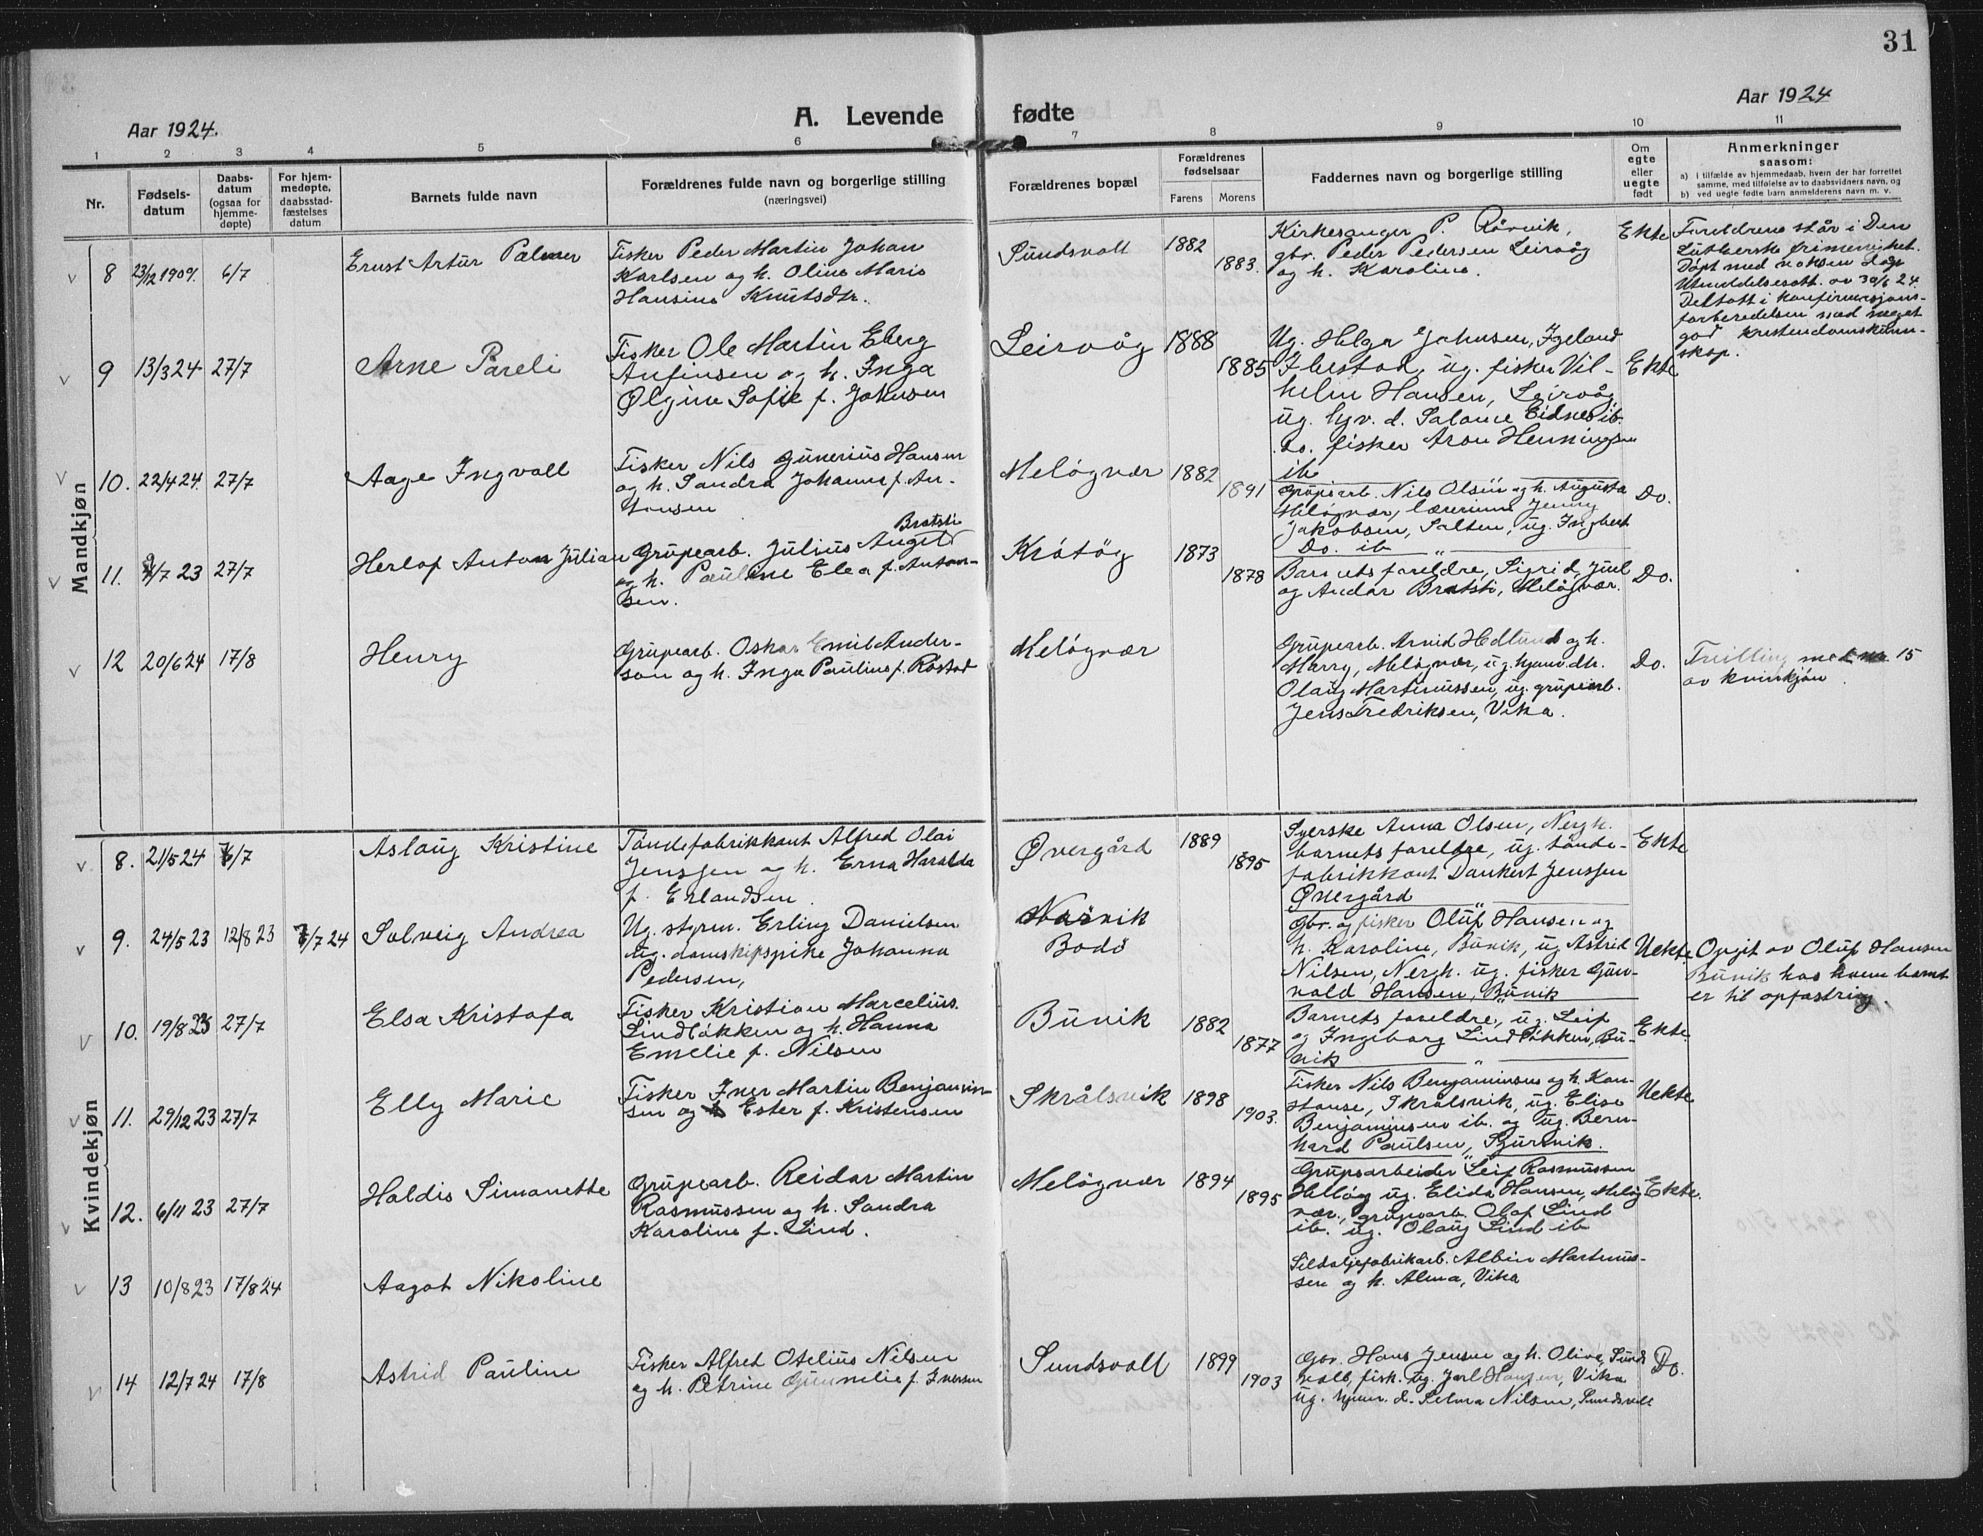 31
Aar 1924.
A. Levende
fødte
Aar 1924
1 2 3 4 5 6 7 8 9 10 11
Nr.
Fødsels-
datum
Daabs-
datum
(ogsaa for
hjemme-
døpte)
For hjem-
medøpte,
daabsstad-
fæstelses
datum
Barnets fulde navn
Forældrenes fulde navn og borgerlige stilling
(næringsvei)
Forældrenes bopæl
Forældrenes
fødselsaar
Farens Morens
Faddernes navn og borgerlige stilling
Om
egte
eller
uegte
født
Anmerkninger
saasom:
a) i tilfælde av hjemmedaab, hvem der har forrettet
samme, med tilføielse av to daabsvidners navn, og
b) ved uegte fødte barn anmelderens navn m. v.
Mandkjøn
8 23/12 1909. 6/7
Ernst Artur Palmer
Fisker Peder Martin Johan
Karlsen og h. Oline Marie
Hansine Knutsdtr.
Sundsvoll 1882
1883.
Kirkesanger P. Rørvik,
gbr. Peder Pedersen Leirvåg
og h. Karoline.
Ekte
Foreldrene står i Den
Lutherske frimenighet.
Døpt med voksen dåp
Utmeldelsesatt. av 30/6 24.
Deltatt i konfirmasjons-
forberedelsen med meget
god kristendomskunn-
skap.
9 13/3 24 27/7
Arne Pareli
Fisker Ole Martin Eberg
Anfinsen og h. Inga
Olgine Sofie f. Johnsen
Leirvåg 1888
1885
Ug. Helga Johnsen, Igeland
Ibestad, ug. fisker Vil-
helm Hansen, Leirvåg,
ug. hjv. d. Salome Eidnes ib.
Do. fisker Aron Henningsen
ib
Ekte
10. 22/4 24. 27/7
Aage Ingvall
Fisker Nils Gunerius Hansen
og h. Sandra Johanne f. An-
tonsen
Meløyvær 1882
1891
Grupearb. Nils Olsen og h. Augusta
Meløyvær, lærerinne Jenny
Jakobsen, Salten, ug. Ingbert
Do. ib
Do.
11. 9/7 23 27/7
Herlof Anton Julian
Bratsti
Grupearb. Julius August
og h. Pauline Elea f. Anton-
sen.
Krøtøy 1873
1878
Barnets foreldre, Sigrid, Juul
og Andor Bratsti, Meløyvær.
Do.
12 20/6 24 17/8
Henry
Grupearb. Oskar Emil Ander-
son og h. Inga Pauline f. Røstad
Meløyvær
Grupearb. Arvid Hedlund og h.
Marry, Meløyvær, ug. hjemv. dtr.
Olaug Martinussen, ug. grupearb.
Jens Fredriksen, Vika.
Do.
Tvilling med nr 15
av kvinkjøn
Kvindekjøn
8. 21/5 24 6/7
Aslaug Kristine
Tøndefabrikkant Alfred Olai
Jenssen og h. Erna Haralda
f. Erlandsen.
Øvergård 1889
1895
Syerske Anna Olsen, Nergh.
barnets foreldre, ug. tønde-
fabrikkant Dankert Jenssen
Øvergård
Ekte
9. 24/5 23 12/8 23 6/7 24
Solveig Andrea
Ug. styrm. Erling Danielsen
ug. damskipspike Johanna
Pedersen,
Bodø
Gbr. og fisker Oluf Hansen og
h. Karoline, Bunik, ug Astrid
Nilsen, Nergh. ug. fisker Gun-
vald Hansen, Buvik
Uekte
Opgit av Oluf Hansen
Buvik hos hvem barnet
er til opfostring.
10. 19/8 23 27/7
Elsa Kristofa
Fisker Kristian Marcelius
Lindløkken og h. Hanna
Emelie f. Nilsen
Buvik 1882
1877
Barnets foreldre, ug. Leif
og Ingeborg Lindløkken, Bu-
vik
Ekte
11. 29/12 23 27/7
Elly Marie
Fisker Iver Martin Benjamin-
sen og h Ester f. Kristensen
Skrålsvik 1898
1903.
Fisker Nils Benjaminsen og h. Kon-
stanse, Skrålsvik, ug. Elise
Benjaminsen ib. og ug. Bern-
hard Paulsen, Sjursvik.
Uekte
12. 6/11 23 27/7
Haldis Simonette
Grupearb. Reidar Martin
Rasmussen og h. Sandra
Karoline f. Lind.
Meløyvær 1894
1895
Grupearbeider Leif Rasmussen
Meløy ug. Elida Hansen, Meløy
vær, grupearb. Olaf Lind
ib. ug. Olaug Lind ib
Ekte.
13 10/8 23 17/8 24
Aagot Nikoline
Sildoljefabrikarb. Albin Martinus-
sen og h. Alma, Vika
14 12/7 24 17/8
Astrid Pauline
Fisker Alfred Otelius Nilsen
og h. Petrine Gunnelie f. Iversen
Sundsvoll 1899
1903
Gbr. Hans Jensen og h. Oliva, Sund
svoll, fisk. ug. Jarl Hansen, Vika
ug. hjemv. d. Selma Nilsen, Sundsvoll
Do.